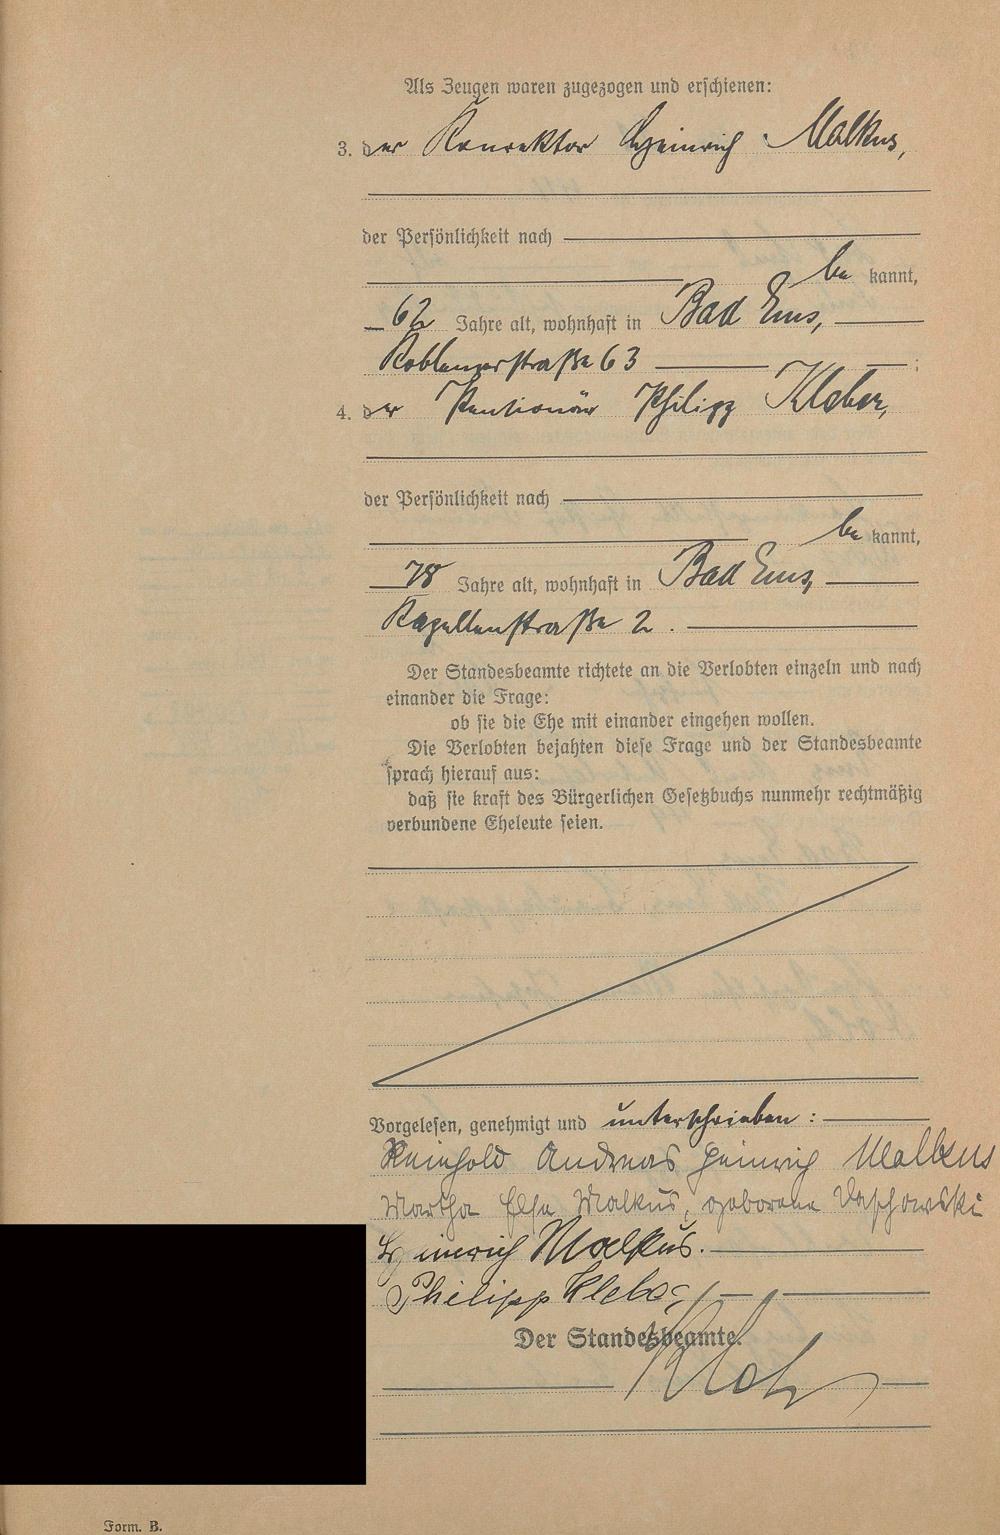 Als Zeugen waren zugezogen und erschienen:
3. der Konrektor Heinrich Malkus,
der Persönlichkeit nach
be kannt,
62 Jahre alt, wohnhaft in Bad Ems,
Koblenzerstraße 63 ;
4. der Pentionär Philipp Kleber,
der Persönlichkeit nach
be kannt,
78 Jahre alt, wohnhaft in Bad Ems,
Kapellenstraße 2.
Der Standesbeamte richtete an die Verlobten einzeln und nach
einander die Frage:
ob sie die Ehe mit einander eingehen wollen.
Die Verlobten bejahten diese Frage und der Standesbeamte
sprach hierauf aus:
daß sie kraft des Bürgerlichen Gesetzbuchs nunmehr rechtmäßig
verbundene Eheleute seien.
Vorgelesen, genehmigt und unterschrieben:
Reinhold Andreas Heinrich Malkus
Martha Else Malkus, geborene Daschowski
Heinrich Malkus.
Philipp Kleber
Der Standesbeamte.
Form. B.